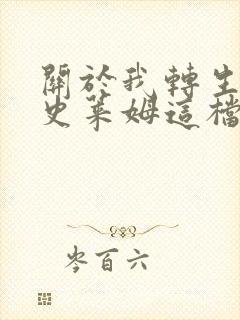 關於我轉生
史萊姆這檔
岑百六